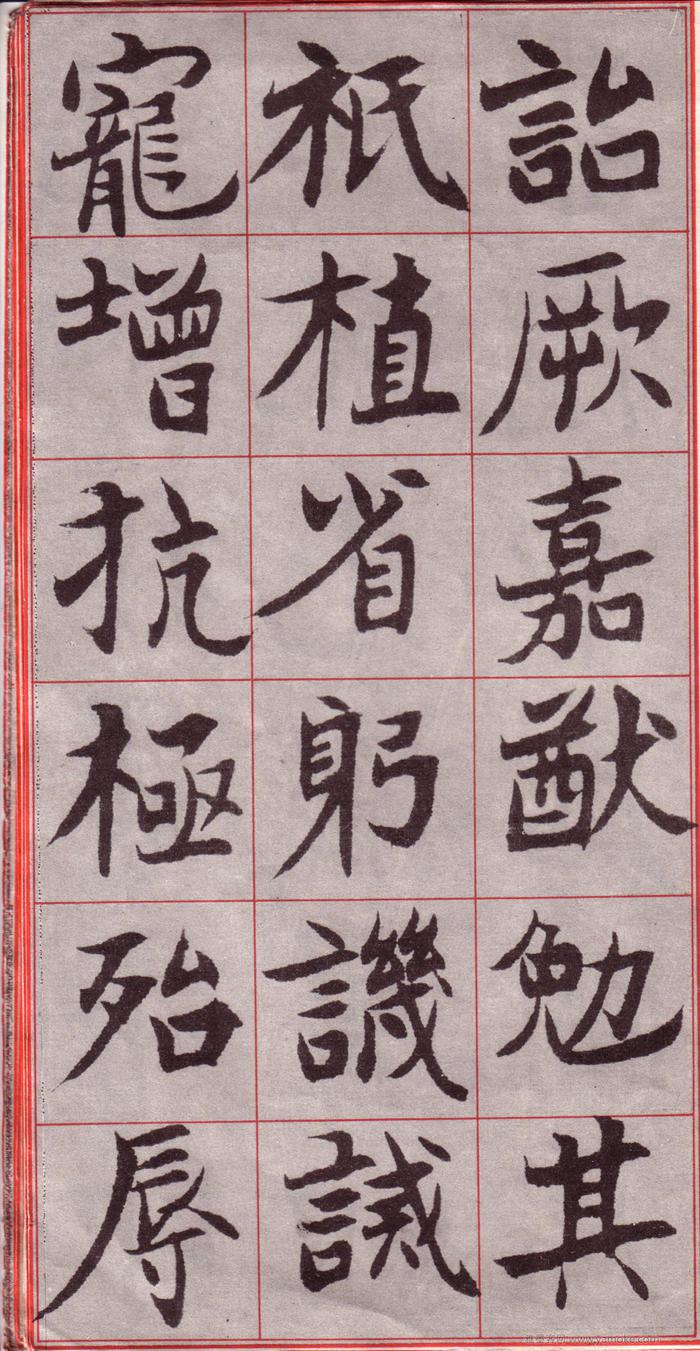 詒厥嘉猷勉其
祇植省躬譏誡
寵增抗極殆辱
www.yamoke.com